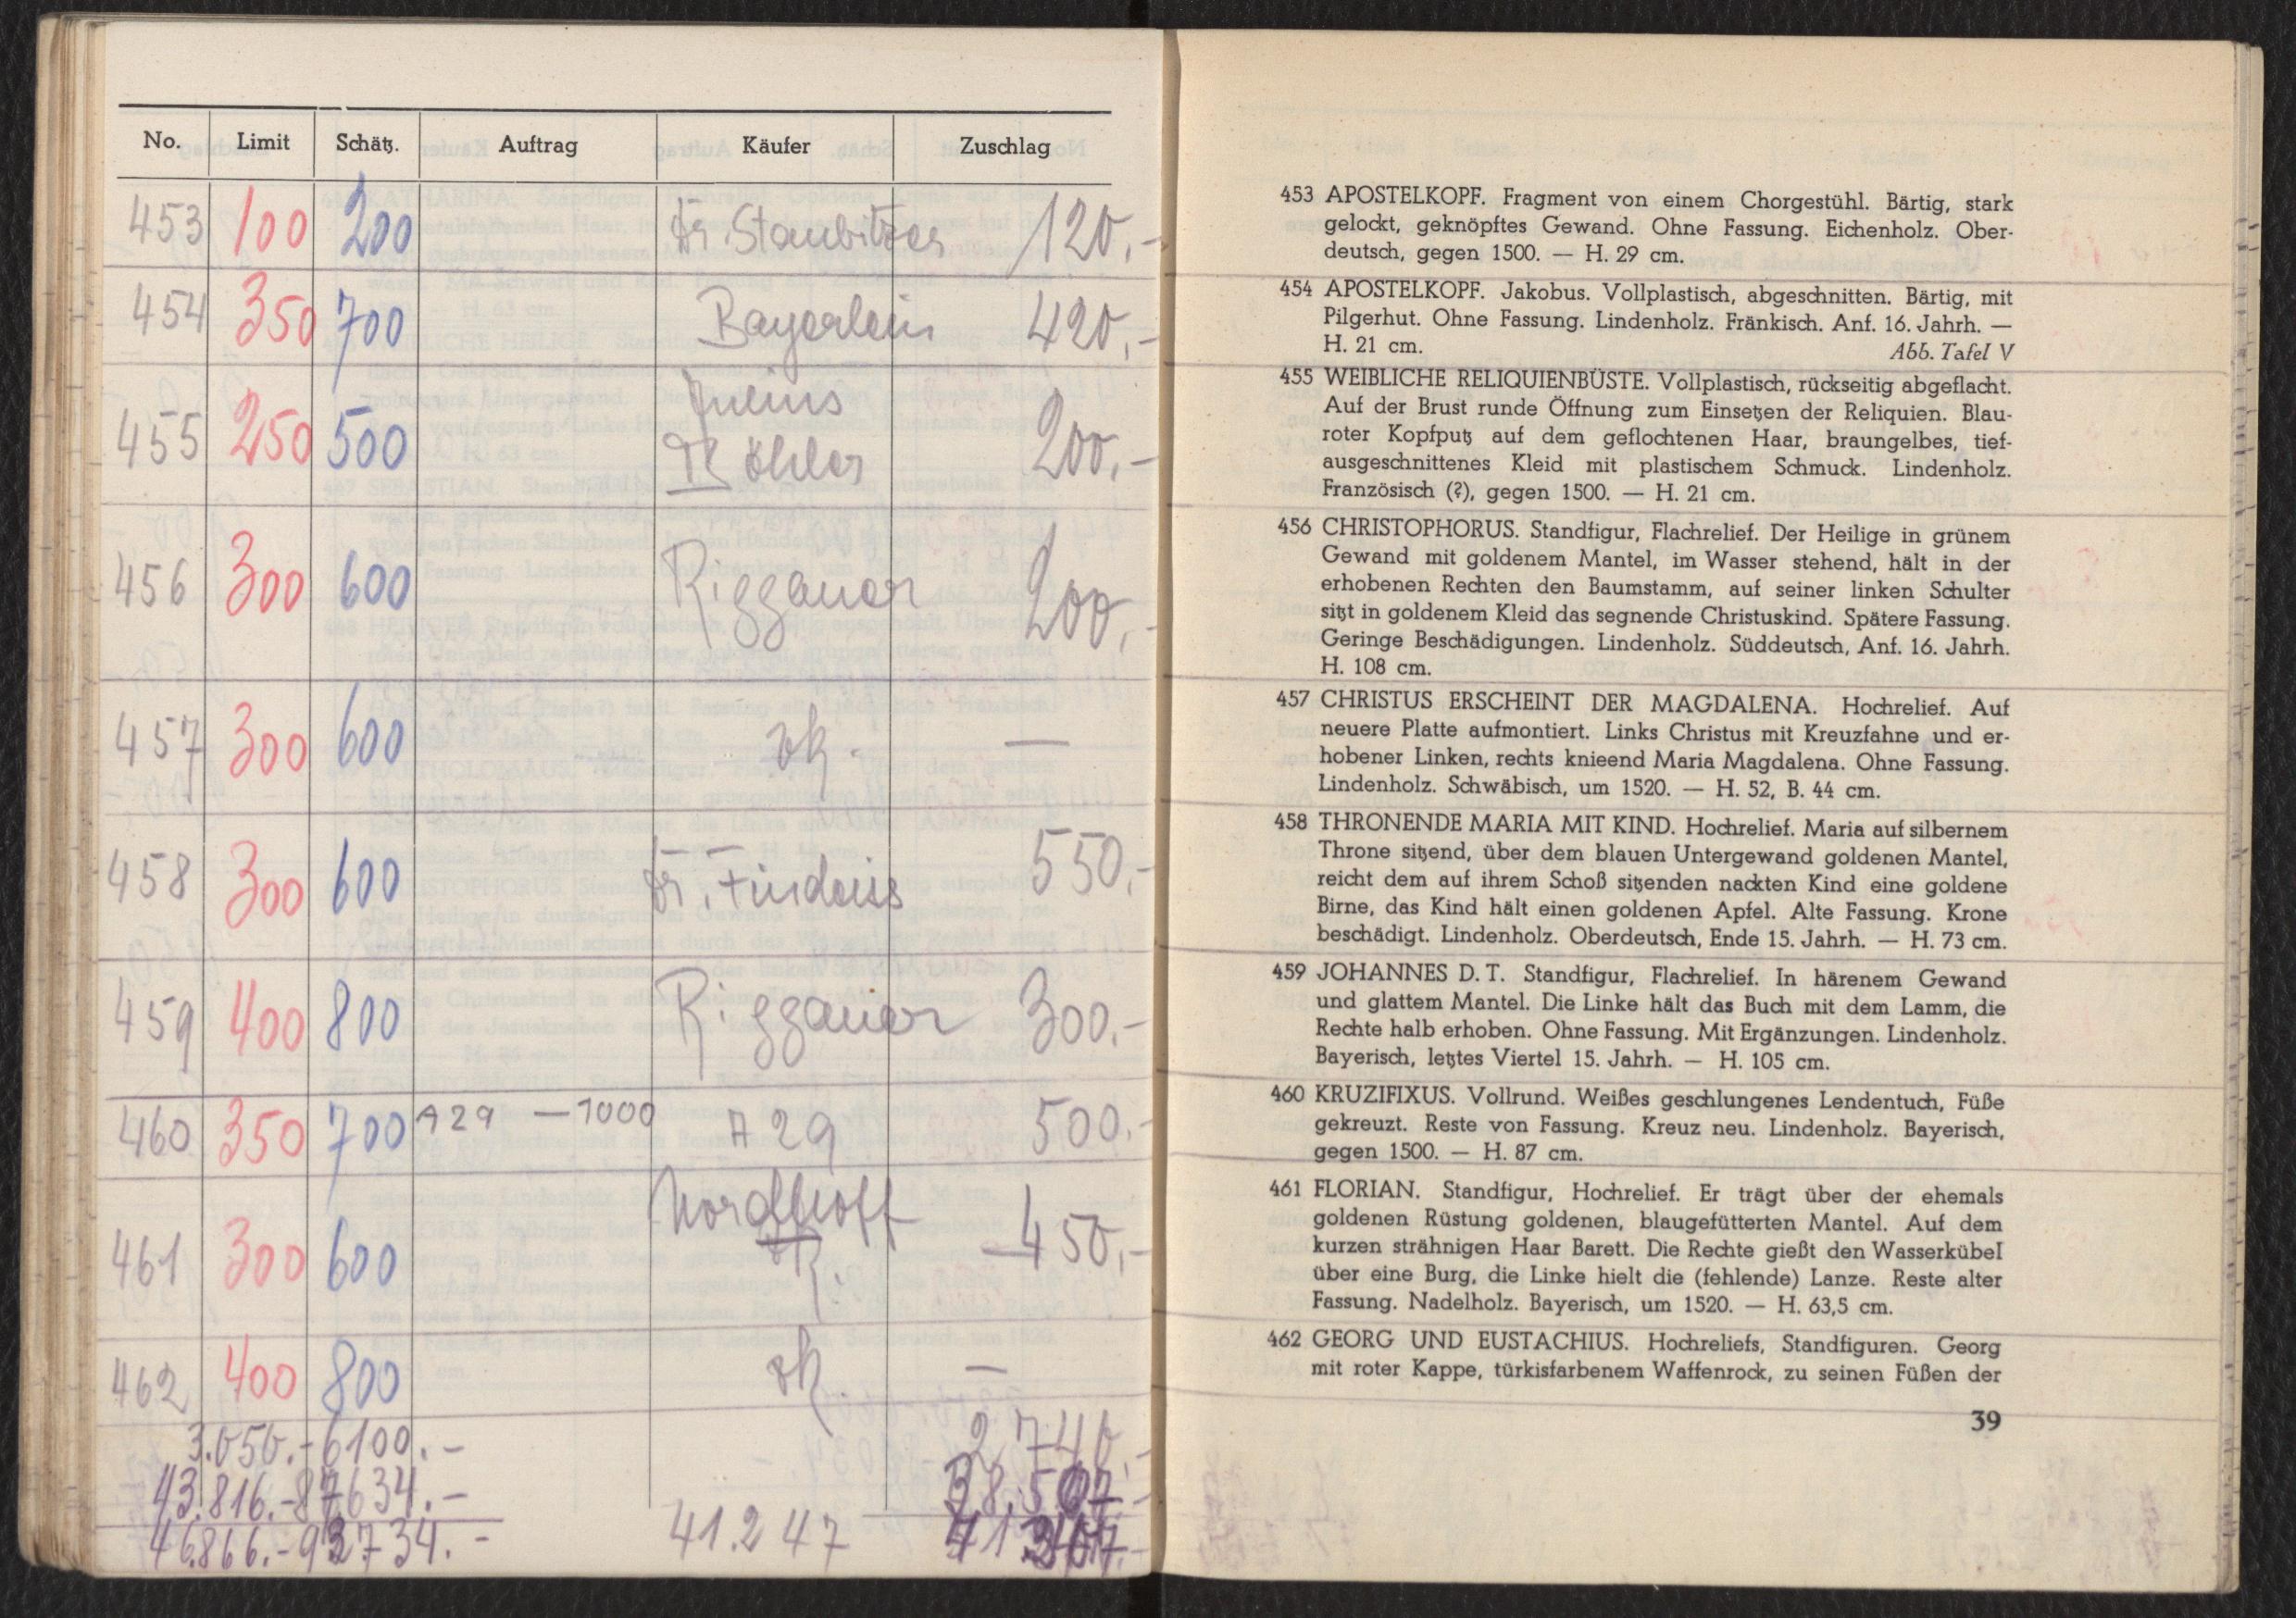 No. Limit Schätz. Auftrag Käufer Zuschlag
453 100 200 Dr. Staubitzer 120,-
454 350 700 Bayerlein 420,-
Julius
455 250 500 Böhler 200,-
456 300 600 Riggauer 200,-
457 300 600 —
458 300 600 Dr. Findeiss 550,-
459 400 800 Riggauer 300.-
460 350 700 A29 — 1000 A 29 500.-
Nordhoff
461 300 600 450,-
462 400 800 —
3.050.- 6100.- 2.740.-
43.816.- 87634.- 38.507.-
46.866.- 93734.- 41.247
453 APOSTELKOPF. Fragment von einem Chorgestühl. Bärtig, stark
gelockt, geknöpftes Gewand. Ohne Fassung. Eichenholz. Ober-
deutsch, gegen 1500. — H. 29 cm.
454 APOSTELKOPF. Jakobus. Vollplastisch, abgeschnitten. Bärtig, mit
Pilgerhut. Ohne Fassung. Lindenholz. Fränkisch. Anf. 16. Jahrh. —
H. 21 cm. Abb. Tafel V
455 WEIBLICHE RELIQUIENBÜSTE. Vollplastisch, rückseitig abgeflacht.
Auf der Brust runde Öffnung zum Einsetzen der Reliquien. Blau-
roter Kopfputz auf dem geflochtenen Haar, braungelbes, tief-
ausgeschnittenes Kleid mit plastischem Schmuck. Lindenholz.
Französisch (?), gegen 1500. — H. 21 cm.
456 CHRISTOPHORUS. Standfigur, Flachrelief. Der Heilige in grünem
Gewand mit goldenem Mantel, im Wasser stehend, hält in der
erhobenen Rechten den Baumstamm, auf seiner linken Schulter
sitzt in goldenem Kleid das segnende Christuskind. Spätere Fassung.
Geringe Beschädigungen. Lindenholz. Süddeutsch, Anf. 16. Jahrh.
H. 108 cm.
457 CHRISTUS ERSCHEINT DER MAGDALENA. Hochrelief. Auf
neuere Platte aufmontiert. Links Christus mit Kreuzfahne und er-
hobener Linken, rechts knieend Maria Magdalena. Ohne Fassung.
Lindenholz. Schwäbisch, um 1520. — H. 52, B. 44 cm.
458 THRONENDE MARIA MIT KIND. Hochrelief. Maria auf silbernem
Throne sitzend, über dem blauen Untergewand goldenen Mantel,
reicht dem auf ihrem Schoß sitzenden nackten Kind eine goldene
Birne, das Kind hält einen goldenen Apfel. Alte Fassung. Krone
beschädigt. Lindenholz. Oberdeutsch, Ende 15. Jahrh. — H. 73 cm.
459 JOHANNES D. T. Standfigur, Flachrelief. In härenem Gewand
und glattem Mantel. Die Linke hält das Buch mit dem Lamm, die
Rechte halb erhoben. Ohne Fassung. Mit Ergänzungen. Lindenholz.
Bayerisch, letztes Viertel 15. Jahrh. — H. 105 cm.
460 KRUZIFIXUS. Vollrund. Weißes geschlungenes Lendentuch, Füße
gekreuzt. Reste von Fassung. Kreuz neu. Lindenholz. Bayerisch,
gegen 1500. — H. 87 cm.
461 FLORIAN. Standfigur, Hochrelief. Er trägt über der ehemals
goldenen Rüstung goldenen, blaugefütterten Mantel. Auf dem
kurzen strähnigen Haar Barett. Die Rechte gießt den Wasserkübel
über eine Burg, die Linke hielt die (fehlende) Lanze. Reste alter
Fassung. Nadelholz. Bayerisch, um 1520. — H. 63,5 cm.
462 GEORG UND EUSTACHIUS. Hochreliefs, Standfiguren. Georg
mit roter Kappe, türkisfarbenem Waffenrock, zu seinen Füßen der
39